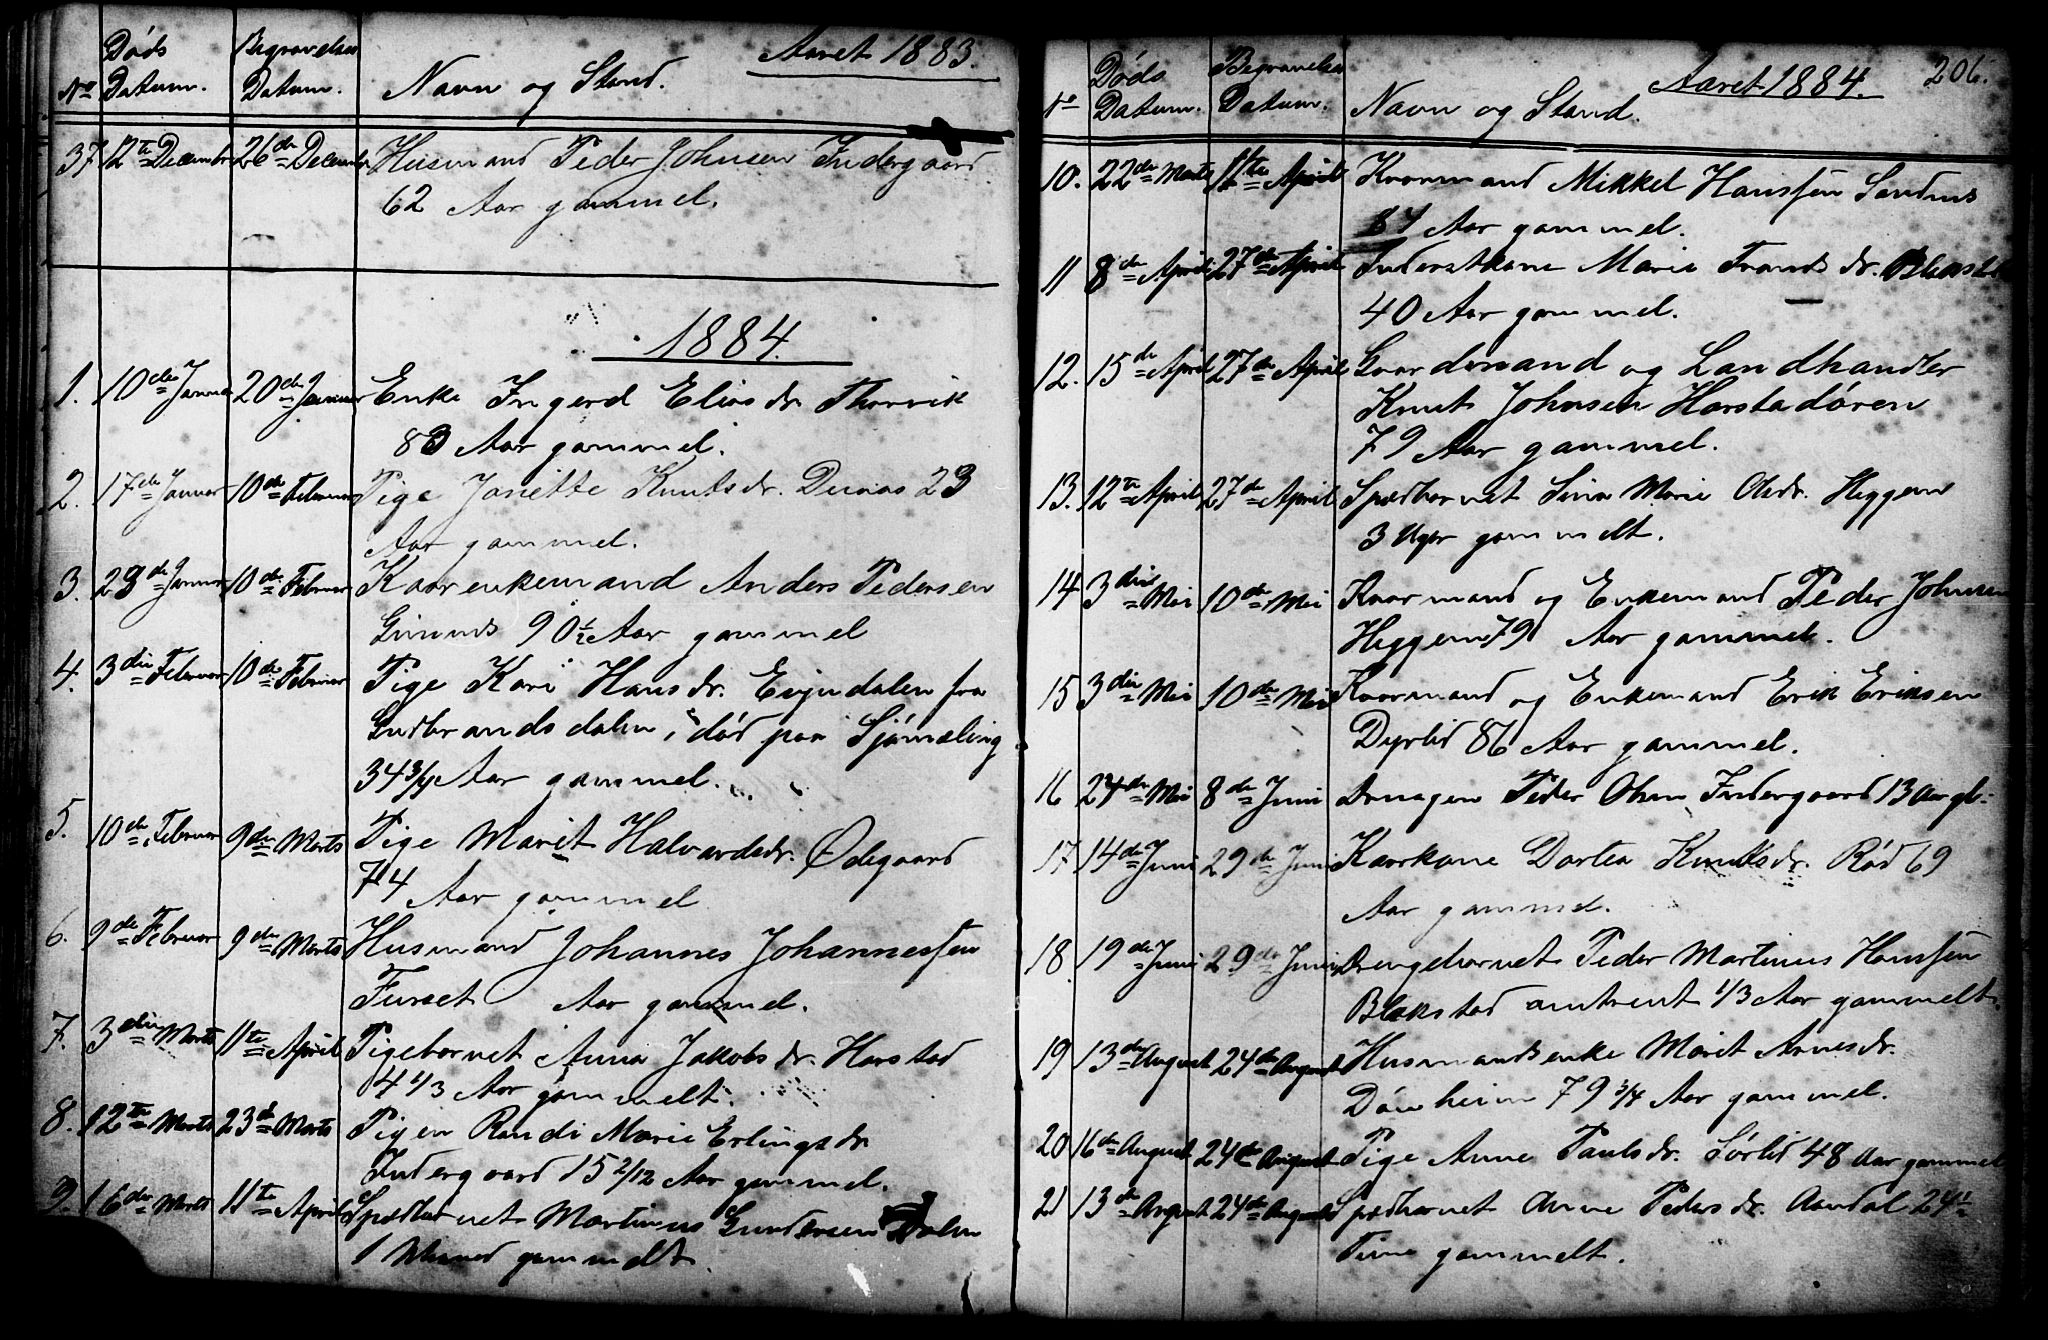 Aaret 1883.
No Døds Datum. Begravelses Datum. Navn og Stand.
37 12te December 26de December Husmand Peder Johnsen Indergaard
62 Aar gammel.
1884.
1. 10de Januar 20de Januar Enke Ingerd Eliasdr. Thorvik
83 Aar gammel.
2. 17de Januar 10de Februar Pige Janette Knutsdr. 23
Aar gammel.
3. 29de Januar 10de Februar Kaarenkemand Anders Pedersen
90 1/2 Aar gammel
4. 3die Februar 10de Februar Pige Kari Hansdr. fra
Gudbrandsdalen, død paa Sjømæling
34 3/4 Aar gammel.
5. 10de Februar 9de Marts Pige Marit Halvardsdr. Ødegaard
74 Aar gammel
6. 9de Februar 9de Marts Husmand Johannes Johannessen
Furset Aar gammel.
7. 3die Marts 11te April Pigebarnet Anna Jakobsdr. Harstad
4 1/3 Aar gammelt.
8. 12te Marts 23de Marts Pigen Randi Marie Erlingsdr.
Indergaard 15 2/12 Aar gammel.
9. 16de Marts 11te April Spædbarnet Martinus Gundersen Dalen
1 Maaned gammelt.
Aaret 1884. 206.
No Døds Datum. Begravelses Datum. Navn og Stand.
10. 22de Marts 11te April Kaarmand Mikkel Hanssen Sandnes
84 Aar gammel.
11 8de April 27de April Inderstkone Marie Frandsdr. Blakstad
40 Aar gammel.
12. 15de April 27de April Gaardmand og Landhandler
Knut Johnsen Harstadøren
79 Aar gammel.
13. 12te April 27de April Spædbarnet Sina Marie Olsdr. Heggem
3 Uger gammelt.
14 3die Mai 10de Mai Kaarmand og Enkemand Peder Johnsen
Heggem 79 Aar gammel.
15 3die Mai 10de Mai Kaarmand og Enkemand Erik Eriksen
Dyrlid 86 Aar gammel.
16 24de Mai 8de Juni Drengen Peder Olsen Indergaard 13 Aar gl:
17 14de Juni 29de Juni Kaarkone Dortea Knutsdr. Rød 69
Aar gammel.
18. 19de Juni 29de Juni Drengebarnet Peder Martinus Hanssen
Blakstad omtrent 1/3 Aar gammelt.
19 13de August 24de August Husmandsenke Marit Arnesdr.
Dønheim 79 3/4 Aar gammel.
20 16de August 24de August Pige Anne Paulsdr. Sørlid 48 Aar gammel
21 13de August 24de August Spædbarnet Anne Pedersdr. Aandal 24 1/2
Time gammelt.